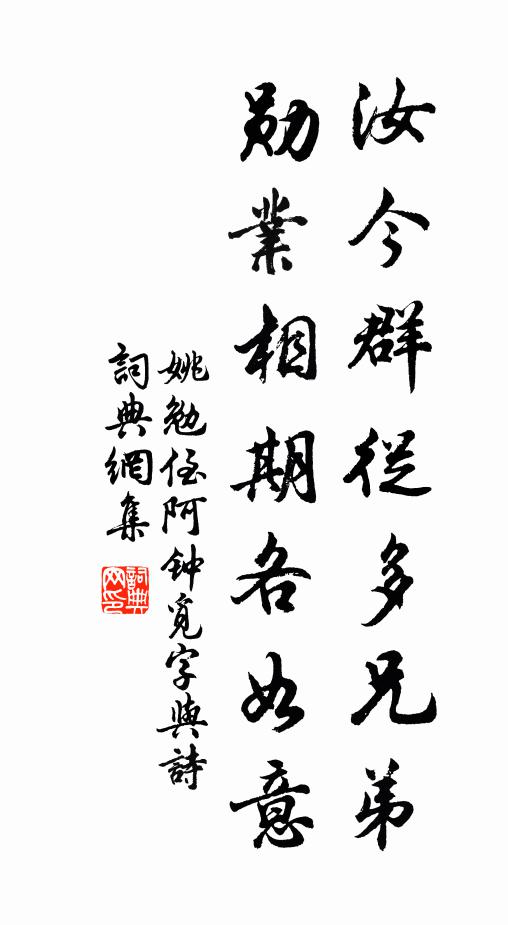 汝今群從多兄弟
勛業相期各如意
姚勉侄阿钟覓字與詩
詞典網集
詞典網印